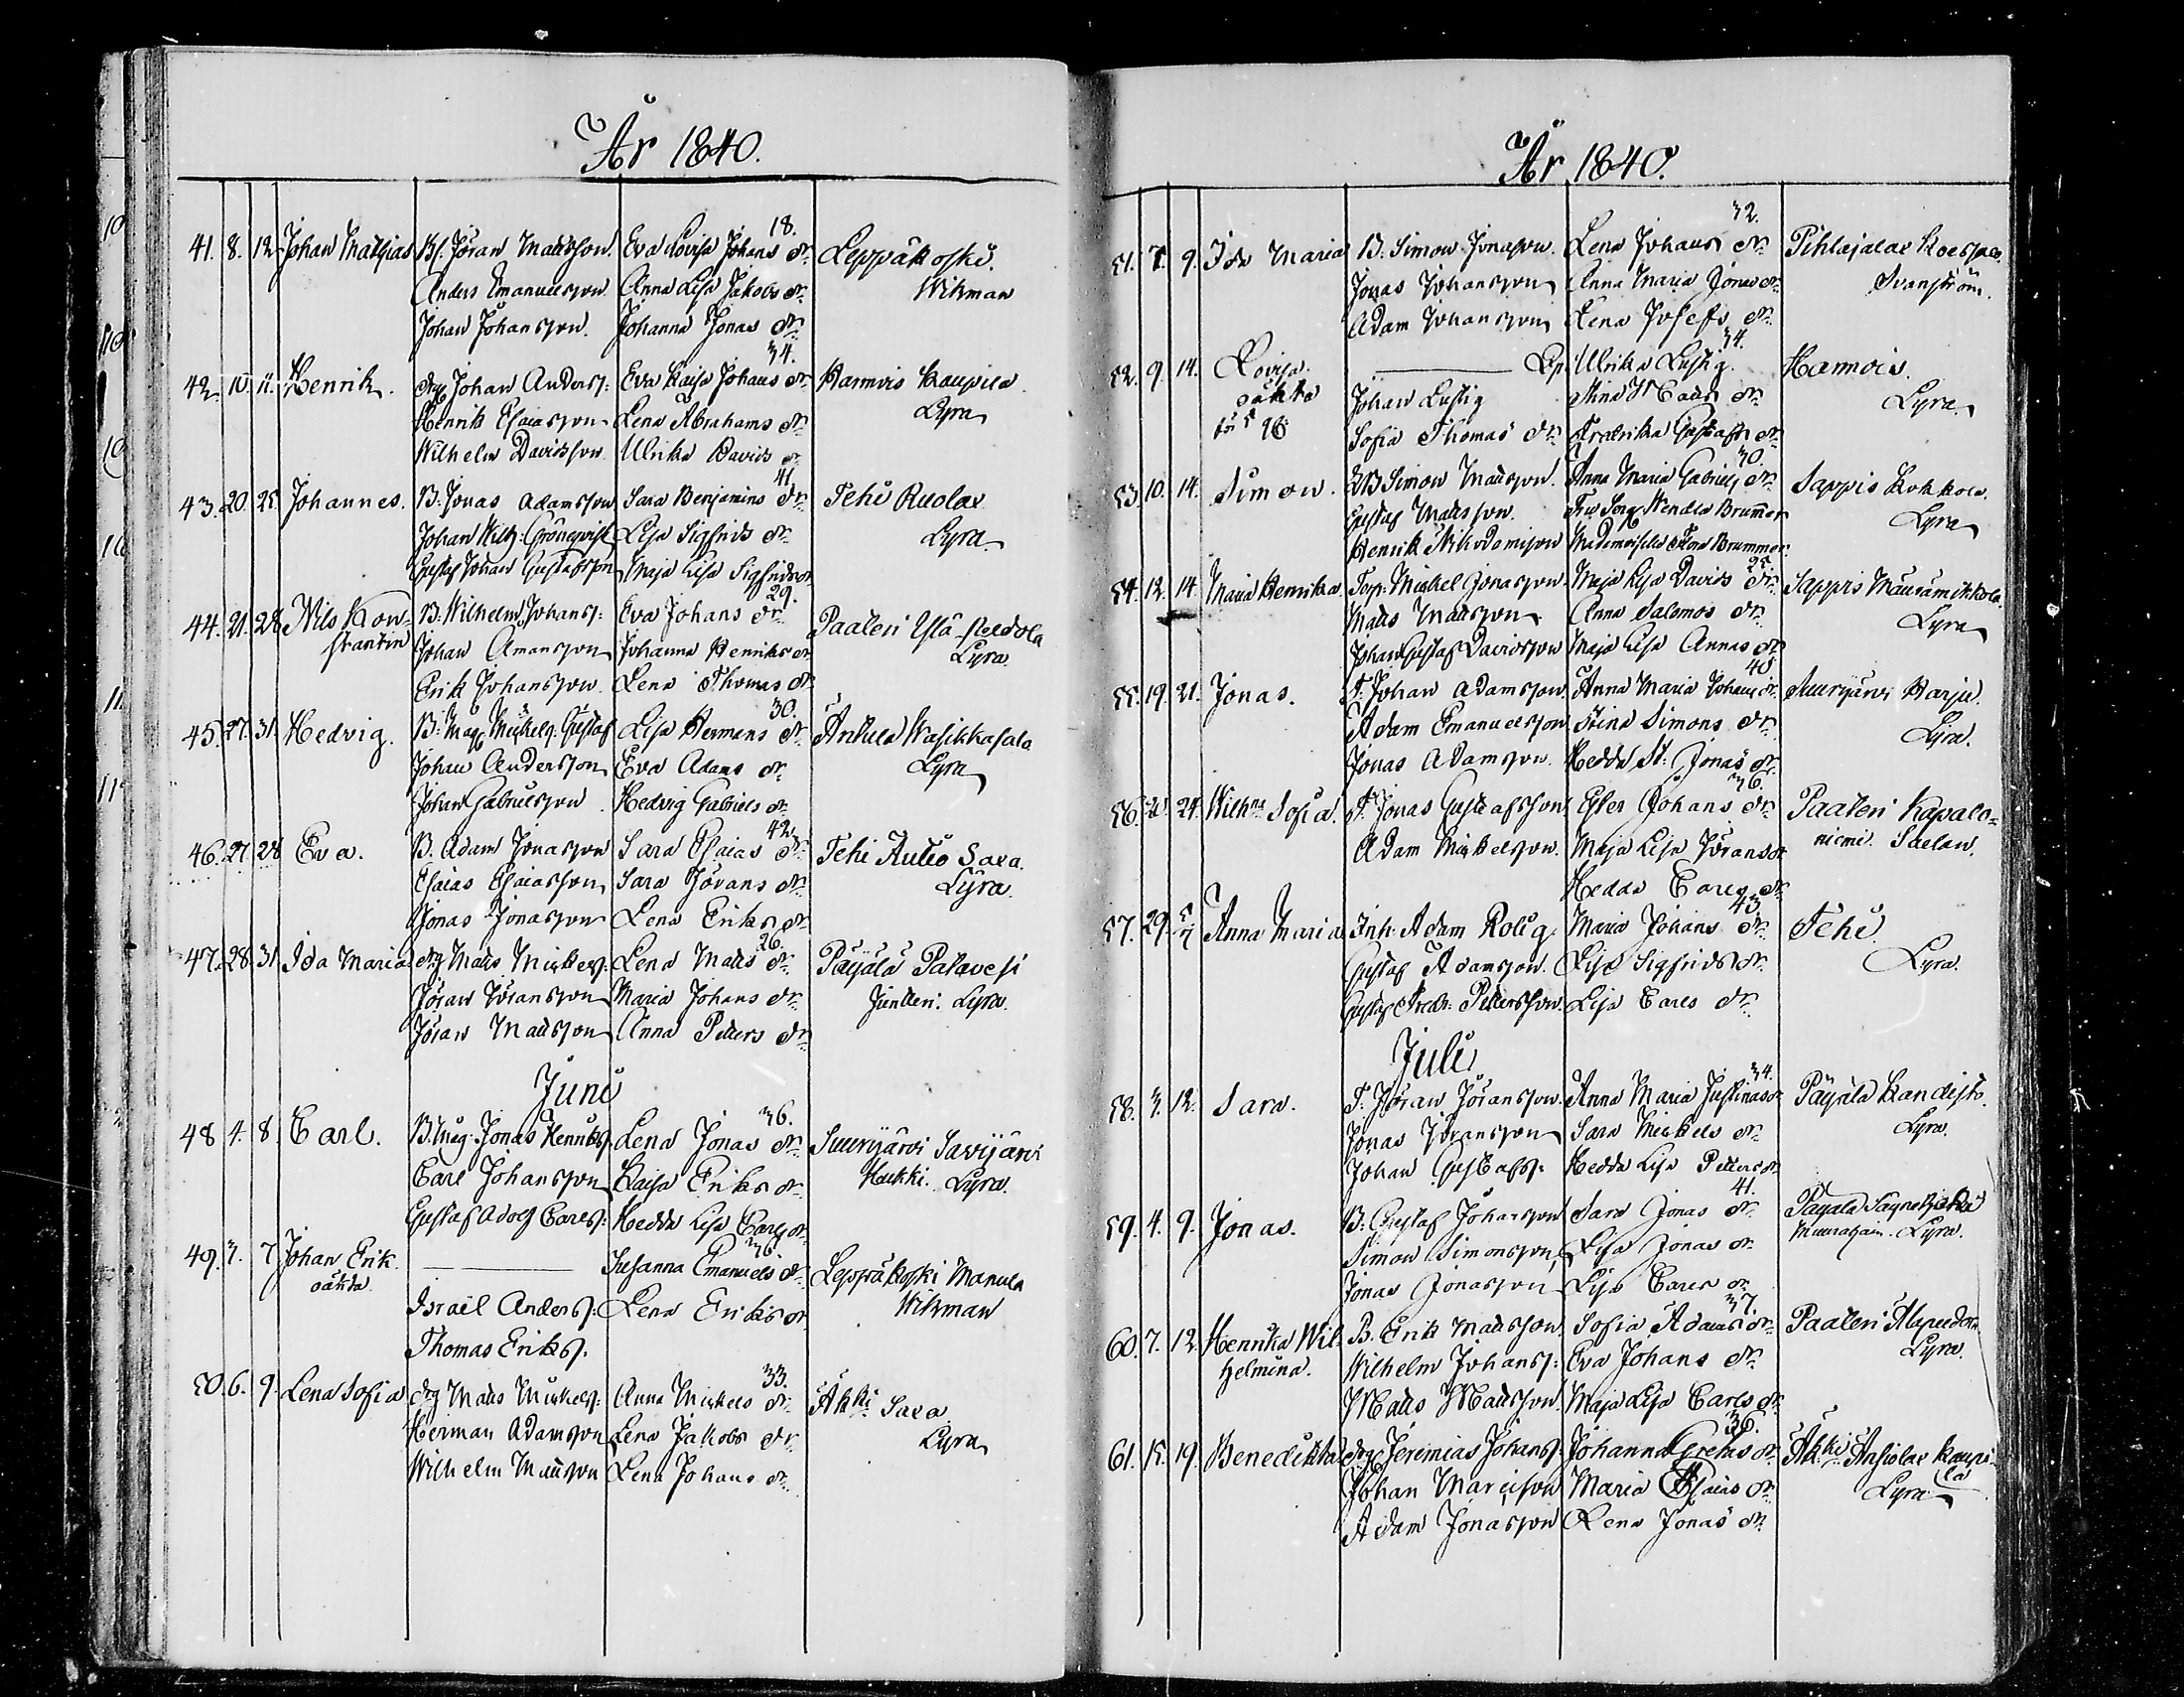 År 1840.
41. 8. 12. Johan Mathias Bs. Jöran Mattsson. Eva Lovisa Johans dr. 18. Leppäkoski.
Anders Emanuelsson Anna Lisa Jakobs dr. Wikman
Johan Johansson. Johanna Jonas dr.
42. 10. 11. Henrik. drg Johan Anderss: Eva Kaisa Johans dr. 34. Hannois Kaupila
Henrik Esaiasson Lena Abrahams dr. Lyra
Wilhelm Davidsson Ulrika Davids dr.
43. 20. 25. Johannes. B. Jonas Adamsson Sara Benjamins dr. 41. Tehi Ruolax
Johan Wilh: Grönqvist Lisa Sigfrids dr. Lyra
Gustaf Johan Gustafsson Maja Lisa Sigfrids dr.
44. 21. 28. Nils Kon- B. Wilhelm Johanss: Eva Johans dr. 29. Paateri Ylä-Seldola
stantin Johan Amansson Johanna Henriks dr. Lyra
Erik Johansson Lena Thomas dr.
45. 27. 31. Hedvig. B: Mag Michels: Gustaf Lisa Hermans dr. 30. Anhula Wasikkasalo
Johan Andersson Eva Adams dr. Lyra
Johan Gabrielsson Hedvig Gabriels dr.
46. 27. 28. Eva. B. Adam Jonasson Sara Esaias dr. 42. Tehi Autio Sara
Esaias Esaiasson Sara Jörans dr. Lyra.
Jonas Jonasson Lena Eriks dr.
47. 28. 31. Ida Maria drg Matts Mickels: Lena Matts dr. 26. Päijälä Patavesi
Jöran Jöransson Maria Johans dr. Junteri. Lyra.
Jöran Mattsson Anna Petters dr.
Juni
48. 4. 8. Carl. B. Mag: Jonas Henriks. Lena Jonas dr. 36. Suurijärvi Savijärvi
Carl Johansson Kaisa Eriks dr. Haukki. Lyra.
Gustaf Adolf Carls: Hedda Lisa Carls dr.
49. 3. 7. Johan Erik Susanna Emanuels dr. 36. Leppäkoski Manula
oäkta Israil Anders: Lena Eriks dr. Wikman
Thomas Eriks:
50. 6. 9. Lena Sofia drg Matts Mickels: Anna Mickels dr. 33. Åkki Sara
Herman Adamsson Lena Jakobs dr. Lyra
Wilhelm Mattsson Lena Johans dr.
År 1840.
51. 7. 9. Ida Maria B. Simon Jonasson. Lena Johans dr. 32. Pihlajalax
Jonas Johansson Anna Maria Jonas dr. Svanström.
Adam Johansson Lena Josefs dr.
52. 9. 14. Lovisa. Lp. Ulrika Lustig. 34. Hannois.
oäkta Johan Lustig Stina Matts dr. Lyra
Sofia Thomas dr. Fredrika Gustafs dr.
53. 10. 14. Simon. B Simon Mattsson. Anna Maria Gabriels dr. 30. Sappis Kokkola.
Gustaf Mattsson. Wendla Brummer Lyra
Henrik Nikodemison Mademoiselle Brummer
54. 12. 14. Maria Henrika Torp: Michel Jonasson. Maja Lisa Davids dr. 25. Sappis
Matts Mattsson Anna Salomos dr. Lyra
Johan Gustaf Davidsson Maja Lisa Annas dr.
55. 19. 21. Jonas. T. Johan Adamsson. Anna Maria Johans dr. 40. Suurijärvi Harju.
Adam Emanuelsson Stina Simons dr. Lyra.
Jonas Adamsson. Hedda St: Jonas dr.
56. 20. 24. Wilhna Sofia. T. Jonas Gustafsson Ester Johans dr. 36. Paateri Kapalo=
Adam Mickelsson. Maja Lisa Jörans dr. niemi. Saelan.
Hedda Carls dr.
57. 29. 5/7 Anna Maria Inh. Adam Rolig Maria Johans dr. 43. Tehi
Gustaf Adamsson. Lisa Sigfrids dr. Lyra.
Gustaf Fredr: Pettersson. Lisa Carls dr.
Juli
58. 3. 12. Sara. T. Jöran Jöransson. Anna Maria Justinas dr. 34. Päijälä Kandisto.
Jonas Jöransson Sara Mickels dr. Lyra.
Johan Gustafs: Hedda Lisa Petters dr.
59. 4. 9. Jonas. B. Gustaf Johansson Sara Jonas dr. 41. Päijälä
Simon Simonsson Lisa Jonas dr. Lyra.
Jonas Jonasson Lisa Carls dr.
60. 7. 12. Henrika Wil- B. Erik Mattsson. Sofia Adams dr. 37. Paateri
helmina. Wilhelm Johans: Eva Johans dr. Lyra.
Matts Mattsson. Maja Lisa Carls dr.
61. 15. 19. Benedikta drg Jeremias Johans: Johanna Gretas dr. 36. Åkki Ahsiolax Kaupi-
la
Johan Marcison Maria Esaias dr. Lyra
Adam Jonasson Lena Jonas dr.